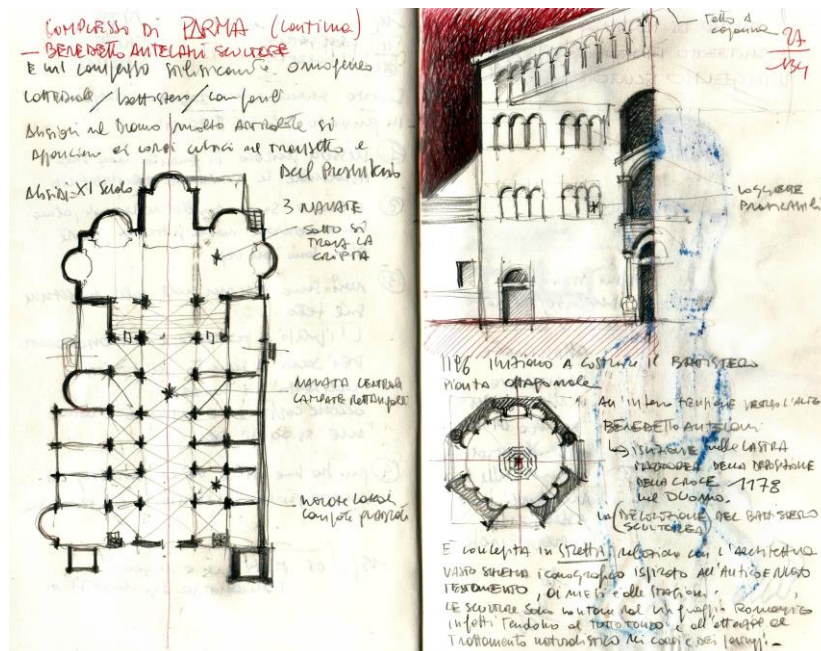 COMPLESSO DI PARMA (continua)
— BENEDETTO ANTELAMI SCULTORE
È un complesso stilisticamente omogeneo
cattedrale / battistero / campanile
Absidi nel Duomo molto
appoggiano ai corpi cubici nel transetto e
del Presbiterio
Absidi = XI Secolo
3 NAVATE
SOTTO SI
TROVA LA
CRIPTA
NAVATA CENTRALE
CAMPATE RETTANGOLARI
campate quadrate
tetto a
capanna
27
134
LOGGETTE
PRATICABILI
1196 INIZIANO A COSTRUIRE IL BATTISTERO
Pianta ottagonale
All'interno tensione verso l'alto
BENEDETTO ANTELAMI
iscrizione nella LASTRA
DELLA DEPOSIZIONE
DELLA CROCE 1178
nel DUOMO.
La (DECORAZIONE) DEL BATTISTERO
SCULTOREA
È concepita in STRETTA relazione con l'Architettura
VASTO SCHEMA iconografico ISPIRATO All'Antico E NUOVO
TESTAMENTO, AI MESI e alle STAGIONI.
LE SCULTURE SONO lontane dal linguaggio Romanico
infatti Tendono al TUTTOTONDO e
Trattamento naturalistico dei corpi e DEI